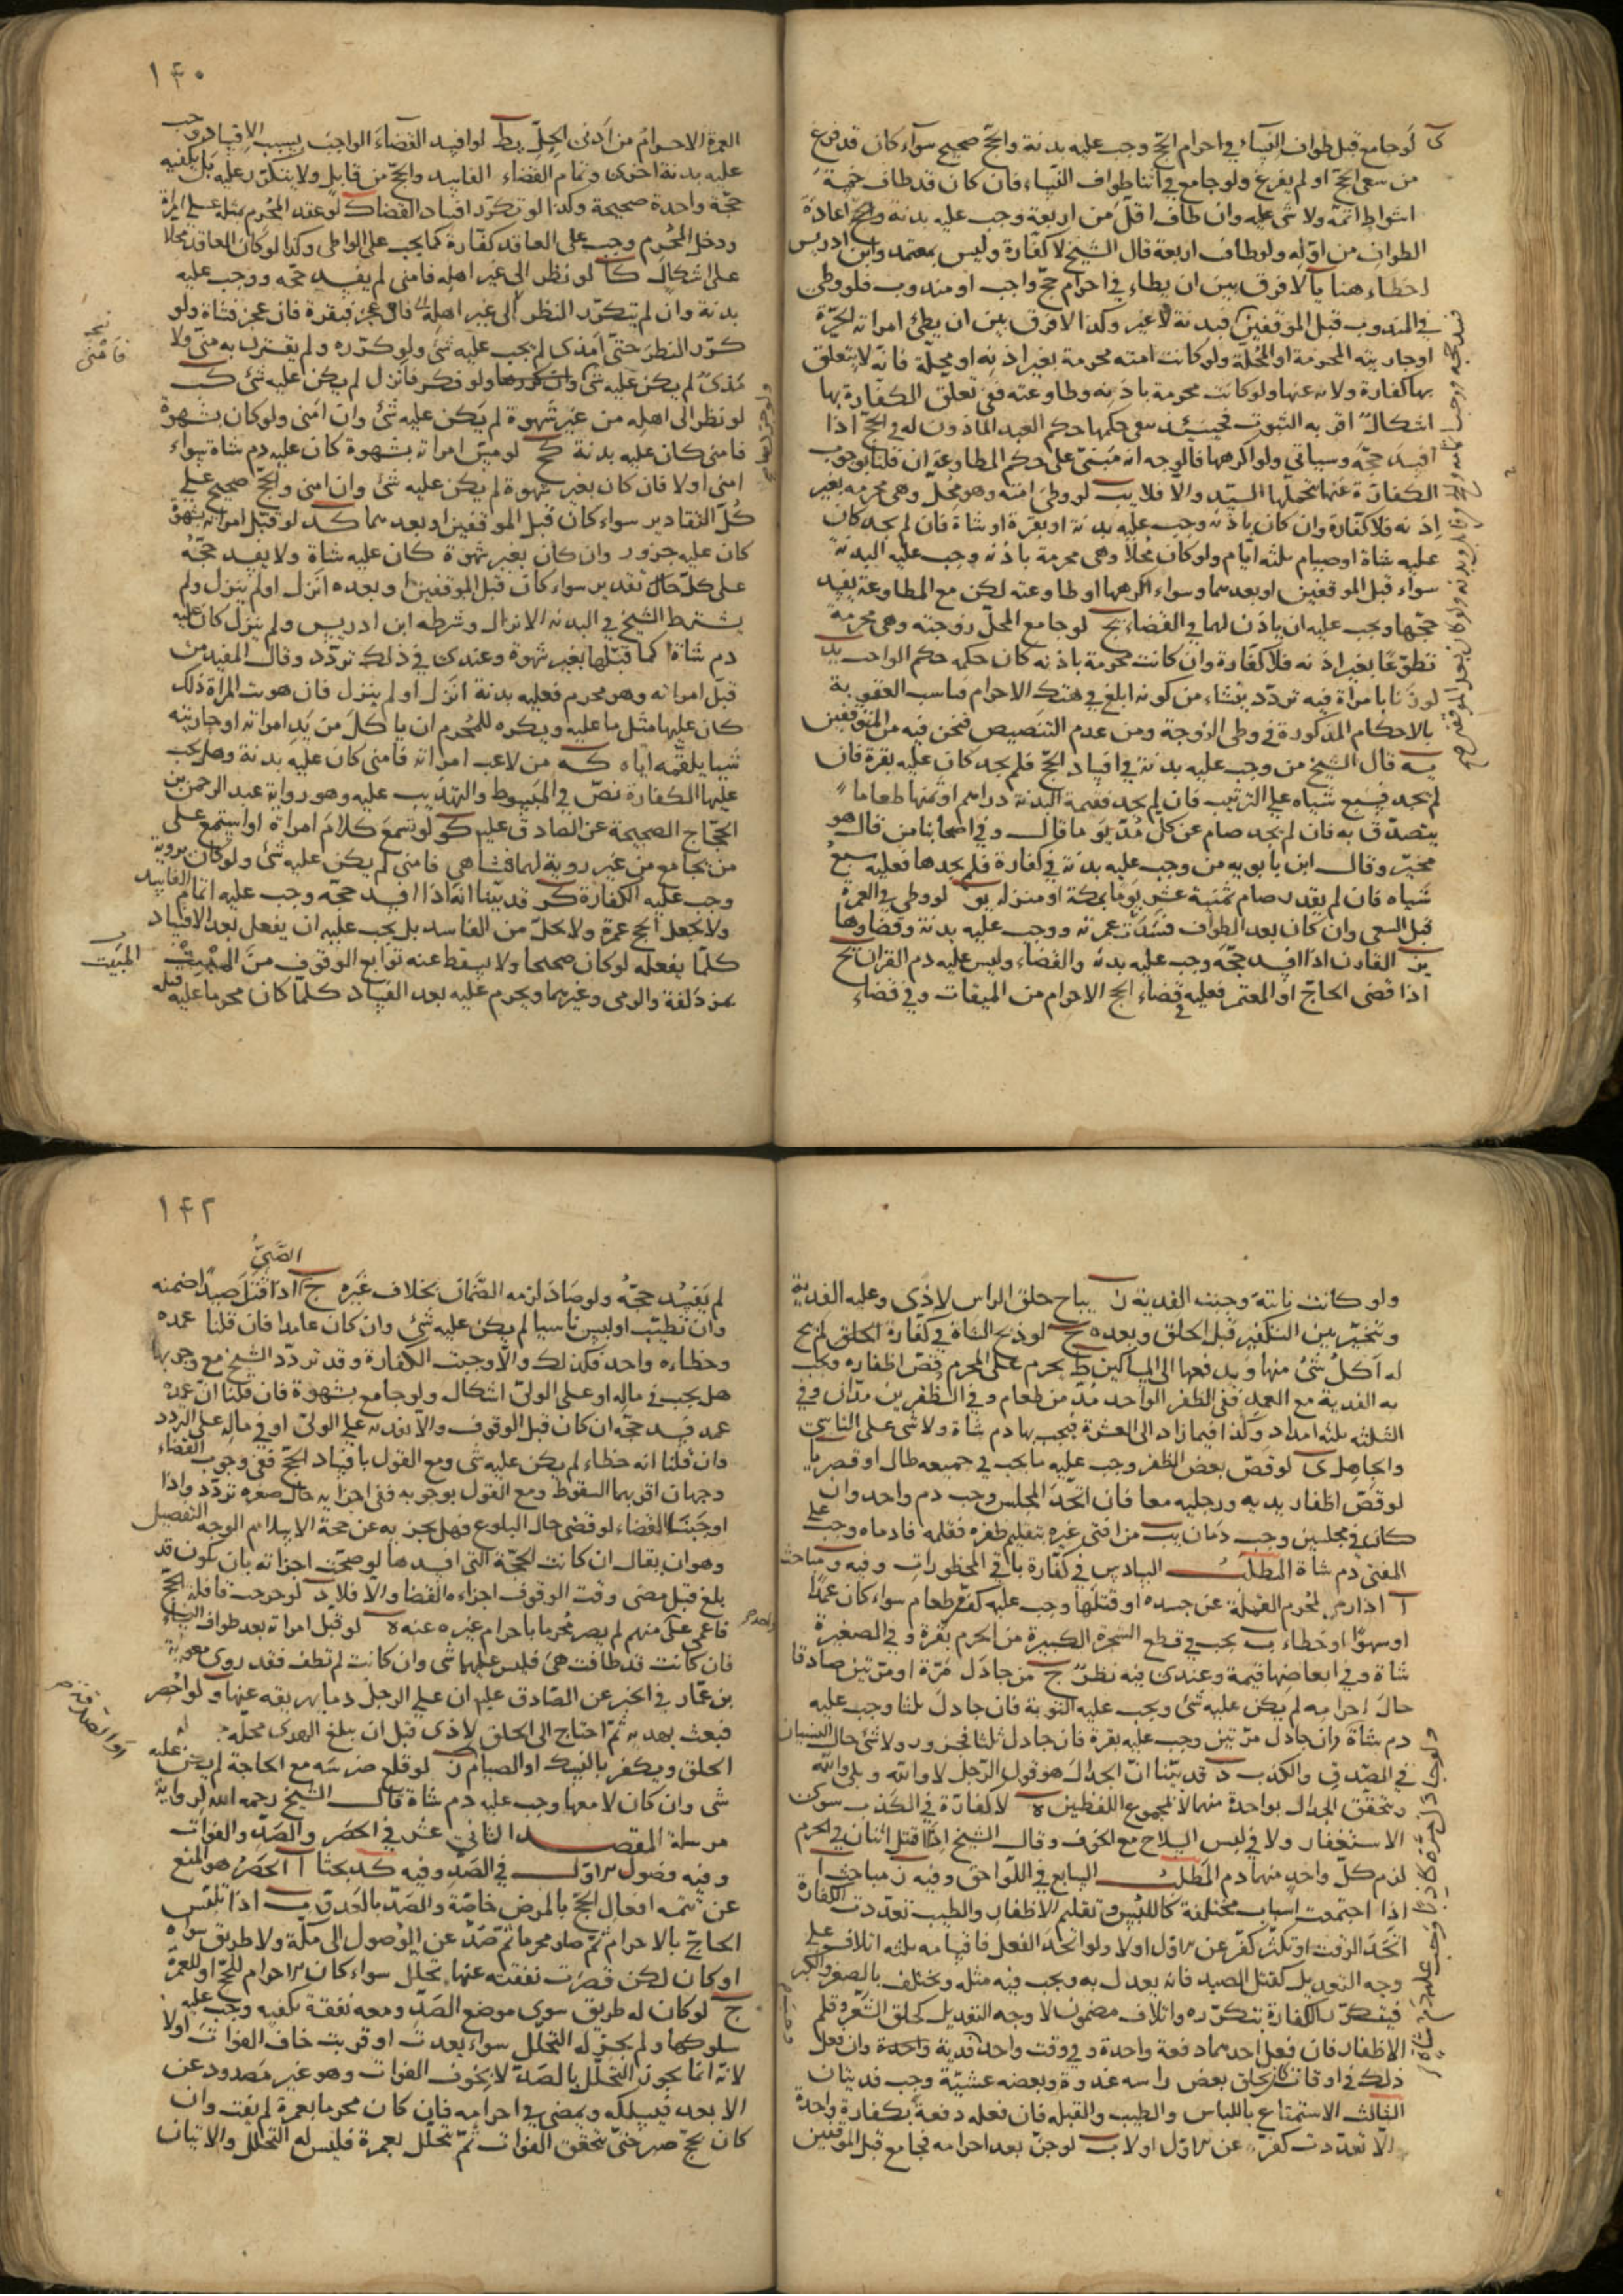 ى لو جامع قبل طواف النساء في احرام الحج وجب عليه بدنة والحج صحيح سواء كان قد فرغ
من سعى الحج او لم يفرغ ولو جامع في اثنا طواف النساء فان كان قد طاف خمسة
اشواط اتمه ولا شى عليه وان طاف اقل من اربعة وجب عليه بدنة واعادة
الطواف من اوله ولو طاف اربعة قال الشيخ لا كفارة وليس بمعتمد وابن ادريس
اخطاء هنا يا لا فرق بين ان يطاء في احرام حج واجب او مندوب فلو وطى
في المندوب قبل الموقفين فبدنة لا غير وكذا لا فرق بين ان يطئ امراته الحرة
او جاريته المحرمة او المحلة ولو كانت امته محرمة بغير اذنه او محلة فانه لا يتعلق
بها كفارة ولا به عنها ولو كانت محرمة باذنه وطاوعته ففي تعلق الكفارة بها
اشكال اقربه الثبوت فحينئذ حكمها حكم العبد الماذون له في الحج اذا
افسد حجه وسياتي ولو اكرهها فالوجه انه مبنى على حكم المطاوعة ان قلنا بوجوب
الكفارة عنها تحملها السيد والا فلا يب لو وطى امته وهو محل وهى محرمة بغير
اذنه فلا كفارة وان كان باذنه وجب عليه بدنة او بقرة او شاة فان لم يجد كان
عليه شاة او صيام ثلثه ايام ولو كان محلا وهى محرمة باذنه وجب عليه البدنة
سواء قبل الموقفين او بعدهما وسواء اكرهها او طاوعته لكن مع المطاوعة يفسد
حجها ويجب عليه ان ياذن لها في القضاء يج لو جامع المحل زوجته وهى محرمة
تطوعا بغير اذنه فلا كفارة وان كانت محرمة باذنه كان حكمه حكم الواجب يد
لو زنا بامراة فيه تردد ينشاء من كونه ابلغ في هتك الاحرام فناسب العقوبة
بالاحكام المذكورة في وطى الزوجة ومن عدم التنصيص فنحن فيه من المتوقفين
يه قال الشيخ من وجب عليه بدنة في افساد الحج فلم يجد كان عليه بقرة فان
لم يجد فسبع شياه على الترتيب فان لم يجد فقيمة البدنة دراهم او ثمنها طعاما
يتصدق به فان لم يجد صام عن كل مد يوما قال وفي اصحابنا من قال هو
مخير وقال ابن بابويه من وجب عليه بدنة في كفارة فلم يجدها فعليه سبع
شياه فان لم يقدر صام ثمنية عشر يوما بمكة او منزله يو لو وطى في العمرة
قبل السعى وان كان بعد الطواف فسدت عمرته ووجب عليه بدنة وقضاوها
يز القارن اذا افسد حجه وجب عليه بدنه والقضاء وليس عليه دم القران يح
اذا قضى الحاج او المعتمر فعليه في قضاء الحج الاحرام من الميقات وفي قضاء
١۴٠
العمرة الاحرام من ادنى الحل يط لو افسد القضاء الواجب بسبب الافساد وجب
عليه بدنة اخرى وتمام القضاء الفاسد والحج من قابل ولا يتكرر عليه بل يكفيه
حجة واحدة صحيحة وكذا لو تكرر افساد القضاء ك لو عقد المحرم بمثله على امراة
ودخل المحرم وجب على العاقد كفارة كما يجب على الواطى وكذا لو كان العاقد محلا
على اشكال كا لو نظر الى غير اهله فامنى لم يفسد حجه ووجب عليه
بدنة وان لم يتكرر النظر الى غير اهله فان عجز فبقرة فان عجز فشاة ولو
كرر النظر حتى امذى لم يجب عليه شئ ولو كرره ولم يقترن به منى ولا
مذى لم يكن عليه شى ولو فكر فانزل لم يكن عليه شئ كب
لو نظر الى اهله من غير شهوة لم يكن عليه شئ وان امنى ولو كان بشهوة
فامنى كان عليه بدنة كج لو مس امراته بشهوة كان عليه دم شاة سواء
امنى او لا فان كان بغير شهوة لم يكن عليه شئ وان امنى والحج صحيح على
كل التقادير سواء كان قبل الموقفين او بعدهما كد لو قبل امراته بشهوة
كان عليه جزور وان كان بغير شهوة كان عليه شاة ولا يفسد حجه
على كل حال تقدير سواء كان قبل الموقفين او بعده انزل او لم ينزل ولم
يشترط الشيخ في البدنة الانزال وشرطه ابن ادريس ولم ينزل كان عليه
دم شاة كما قبلها بغير شهوة وعندى في ذلك تردد وقال المفيد من
قبل امراته وهو محرم فعليه بدنة انزل او لم ينزل فان هوت المراة ذلك
كان عليها مثل ما عليه ويكره للمحرم ان ياكل من يد امراته او جاريته
شيا يلقمه اياه كه من لاعب امراته فامنى كان عليه بدنة وهل يجب
عليها الكفارة نص في المبسوط والتهذيب عليه وهو رواية عبد الرحمن بن
الحجاج الصحيحة عن الصادق عليه كو لو تسمع كلام امراة او استمع على
من يجامع من غير روية لهما فتشاهى فامنى لم يكن عليه شئ ولو كان بروية
وجب عليه الكفارة كز قد بينا انه اذا افسد حجه وجب عليه اتمام الفاسد
ولا يجعل الحج عمرة ولا يحل من الفاسد بل يجب عليه ان يفعل بعد الافساد
كلما يفعله لو كان صحيحا ولا يسقط عنه توابع الوقوف من المبيت
بمزدلفة والرمى وغيرهما ويحرم عليه بعد الفساد كلما كان محرما عليه قبله
فامنى
المبيت
ولو كانت نابتة وجبت الفدية ز يباح حلق الراس لاذى وعليه الفدية
ويتخير بين التكفير قبل الحلق وبعده ح لو ذبح الشاة في كفارة الحلق لم يبح
له اكل شئ منها ويدفعها الى المساكين ط يحرم على المحرم قص اظفاره ويجب
به الفدية مع العمد ففى الظفر الواحد مد من طعام وفي الظفرين مدان وفي
الثلثه ثلثه امداد وكذا فيما زاد الى العشرة فيجب بها دم شاة ولا شى على الناسى
والجاهل ى لو قص بعض الظفر وجب عليه ما يجب في جميعه طال او قصر يا
لو قص اظفار يديه ورجليه معا فان اتحد المجلس وجب دم واحد وان
كان في مجلسين وجب دمان يب من افتى غيره بتقليم ظفره فقلمه فادماه وجب على
المفتى دم شاة المطلب السادس في كفارة باقى المحظورات وفيه و مباحث
ا اذا رمى المحرم القملة عن جسده او قتلها وجب عليه كف طعام سواء كان عمدا
او سهوا او خطاء ب يجب في قطع الشجرة الكبيرة من الحرم بقرة وفي الصغيرة
شاة وفي ابعاضها قيمة وعندى فيه نظر ج من جادل مرة او مرتين صادقا
حال احرامه لم يكن عليه شئ ويجب عليه التوبة فان جادل ثلثا وجب عليه
دم شاة وان جادل مرتين وجب عليه بقرة فان جادل ثلثا فجزور ولا شئ حال النسيان
في الصدق والكذب د قد بينا ان الجدال هو قول الرجل لا والله وبلى والله
ويتحقق الجدال بواحدة منهما لا بمجموع اللفظين ه لا كفارة في الكذب سوى
الاستغفار ولا في لبس السلاح مع الخوف و قال الشيخ اذا اقتتل اثنان في الحرم
لزم كل واحد منهما دم المطلب السابع في اللواحق وفيه ن مباحث ا
اذا اجتمعت اسباب مختلفة كاللبس وتقليم الاظفار والطيب تعددت الكفارة
اتحد الوقت او تكثر كفر عن الاول اولا ولو اتحد الفعل فاقسامه ثلثه اتلاف على
وجه التعديل كقتل الصيد فانه يعدل به ويجب فيه مثله ويختلف بالصغر والكبر
فيتكرر الكفارة بتكرره واتلاف مضمون لا وجه التعديل كحلق الشعر وقلم
الاظفار فان فعل احدهما دفعة واحدة في وقت واحد فدية واحدة وان فعل
ذلك في اوقات كان يحلق بعض راسه غدوة وبعضه عشية وجب فديتان
الثالث الاستمتاع باللباس والطيب والقبله فان فعله دفعة بكفارة واحدة
الا تعددت كفر عن الاول اولا ب لو جن بعد احرامه فجامع قبل الموقفين
١۴٢
الصبى
لم يفسد حجه ولو صاد لزمه الضمان بخلاف غيره ج اذا قتل صيدا ضمنه
وان تطيب او لبس ناسيا لم يكن عليه شئ وان كان عامدا فان قلنا عمده
وخطاءه واحد فكذلك والا وجبت الكفارة وقد تردد الشيخ مع وجوبها
هل يجب في ماله او على الولى اشكال ولو جامع بشهوة فان قلنا ان عمده
عمد فسد حجه ان كان قبل الوقوف والا بدنه على الولى او في ماله على التردد
وان قلنا انه خطاء لم يكن عليه شى ومع القول بافساد الحج ففى وجوب القضاء
وجهان اقربهما السقوط ومع القول بوجوبه ففى اجزايه حال صغره تردد واذا
اوجبنا القضاء لو قضى حال البلوغ فهل يجزيه عن حجة الاسلام الوجه التفصيل
وهو ان يقال ان كانت الحجة التى افسدها لو صحت اجزاته بان كون قد
بلغ قبل مضى وقت الوقوف اجزاءه القضا والا فلا د لو خرجت قافلة الحج
فاغمى على منهم لم يصر محرما باحرام غيره عنه ه لو قبل امراته بعد طواف النساء
فان كانت قد طافت هى فليس عليهما شى وان كانت لم تطف فقد روى معوية
بن عمار في الخبر عن الصادق عليه ان على الرجل دما يهريقه عنها و لو احصر
فبعث بهديه ثم احتاج الى الحلق لاذى قبل ان يبلغ الهدى محله
الحلق ويكفر بالنسك او الصيام ز لو قلع ضرسه مع الحاجة لم يكن عليه
شى وان كان لا معها وجب عليه دم شاة قال الشيخ رحمه الله لرواية
مرسلة المقصد الثانى عشر في الحصر والصد والفوات
وفيه فصول الاول في الصد وفيه كد بحثا ا الحصر هو المنع
عن تتمه افعال الحج بالمرض خاصة والصد بالعدو ب اذا تلبس
الحاج بالاحرام ثم صار محرما ثم صد عن الوصول الى مكة ولا طريق سواه
او كان لكن قصرت نفقته عنها تحلل سواء كان الاحرام للحج او للعمرة
ج لو كان له طريق سوى موضع الصد ومعه نفقة تكفيه وجب عليه
سلوكها ولم يجز له التحلل سواء بعدت او قربت خاف الفوات اولا
لانه انما يجوز التحلل بالصد لا بخوف الفوات وهو غير مصدود عن
الابعد فيسلكه ويمضى في احرامه فان كان محرما بعمرة لم يفت وان
كان بحج صبر حتى يتحقق الفوات ثم تحلل بعمرة فليس له التحلل والاتيان
او الصدقة